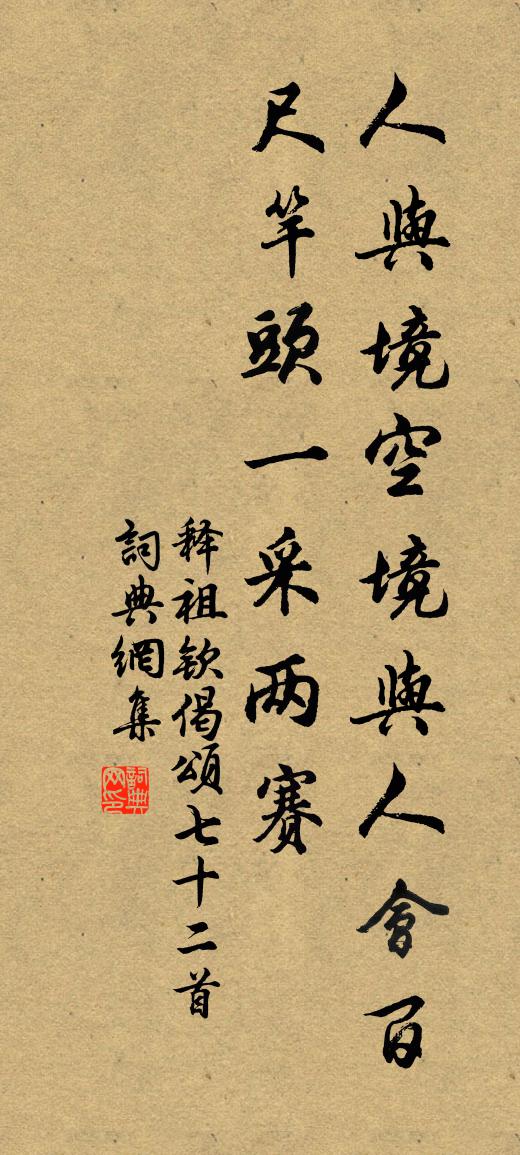 人與境空境與人會百
尺竿頭一采两賽
释祖欽偈頌七十二首
詞典網集
詞典網印